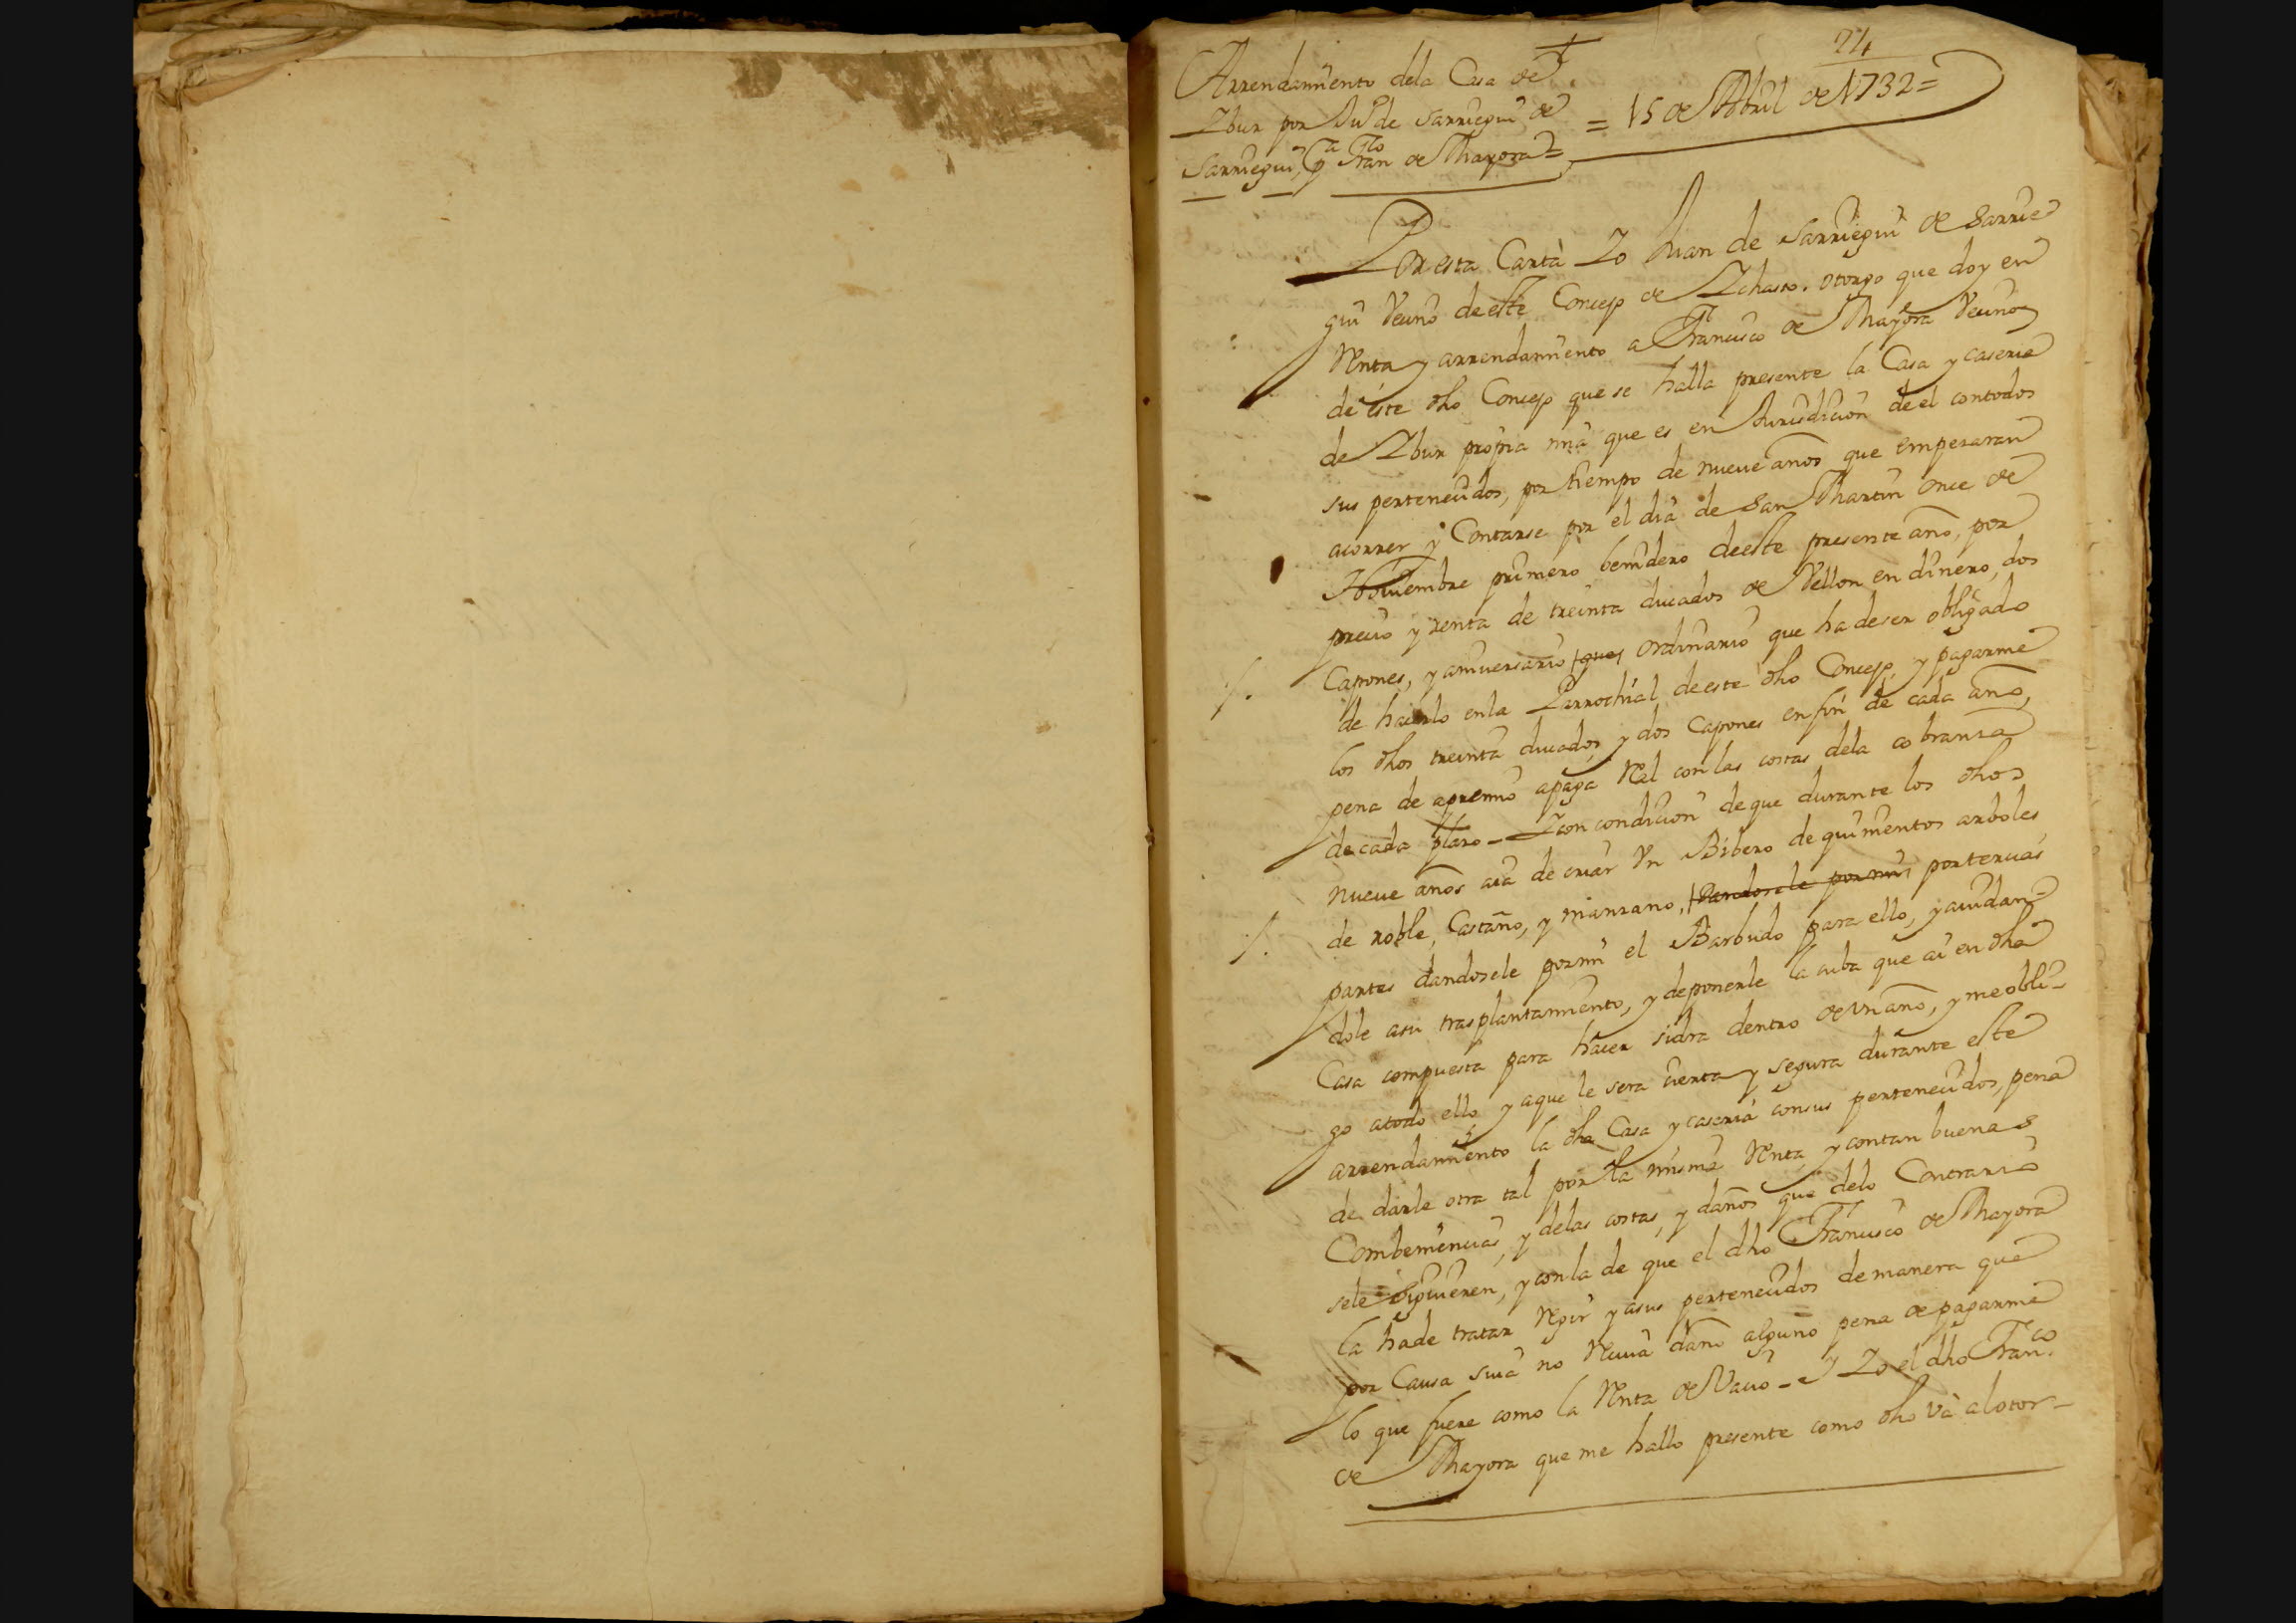 24
Arrendamiento dela Casa de
Ybur por Juº de Sarriegui de
Sarriegui, a Franco de Mayora =
= 15 de Abril de 1732 =
Por esta Carta Yo Juan de Sarriegui de Sarrie
gui Vecino de este Concejo de Ychaso. otorgo que doy en
Renta y arrendamiento a Francisco de Mayora Vecino
de este dho Concejo que se halla presente la Casa y caseria
de Ybur propria mia que es en Jurisdicion de el con todos
sus pertenecidos, por tiempo de nueve años que empezaran
acorrer y Contarse por el dia de San Martin once de
Noviembre primero benidero de este presente año, por
precio y renta de treinta ducados de Vellon en dinero, dos
Capones, y aniversario que ordinario que ha de ser obligado
de hacerlo en la Parrochial de este dho Concejo, y pagarme
los dhos treinta ducados, y dos Capones en fin de cada año,
pena de apremio apaga Real con las costas dela cobranza
de cada plazo - Y con condicion de que durante los dhos
nueve años aia de criar Un Bibero de quinientos arboles
de roble, Castaño, y manzano, dandosele por mi por tercias
partes dandosele por mi el Barbado para ello, y aiudan
dole asu trasplantamiento, y deponerle la cuba que ai en dha
Casa compuesta para hacer sidra dentro de Un año, y me obli-
go atodo ello y aque le sera cierta y segura durante este
arrendamiento la dha Casa y caseria con sus pertenecidos, pena
de darle otra tal por la misma Renta y contan buenas
Combeniencias, y delas costas, y daños que delo Contrario
sele siguieren, y con la de que el dho Francisco de Mayora
la hade tratar Regir y asus pertenecidos de manera que
por Causa suia no Reciva daño alguno pena de pagarme
lo que fuere como la Renta de Vacio - Y Yo el dho Franco
de Mayora que me hallo presente como dho va alotor-